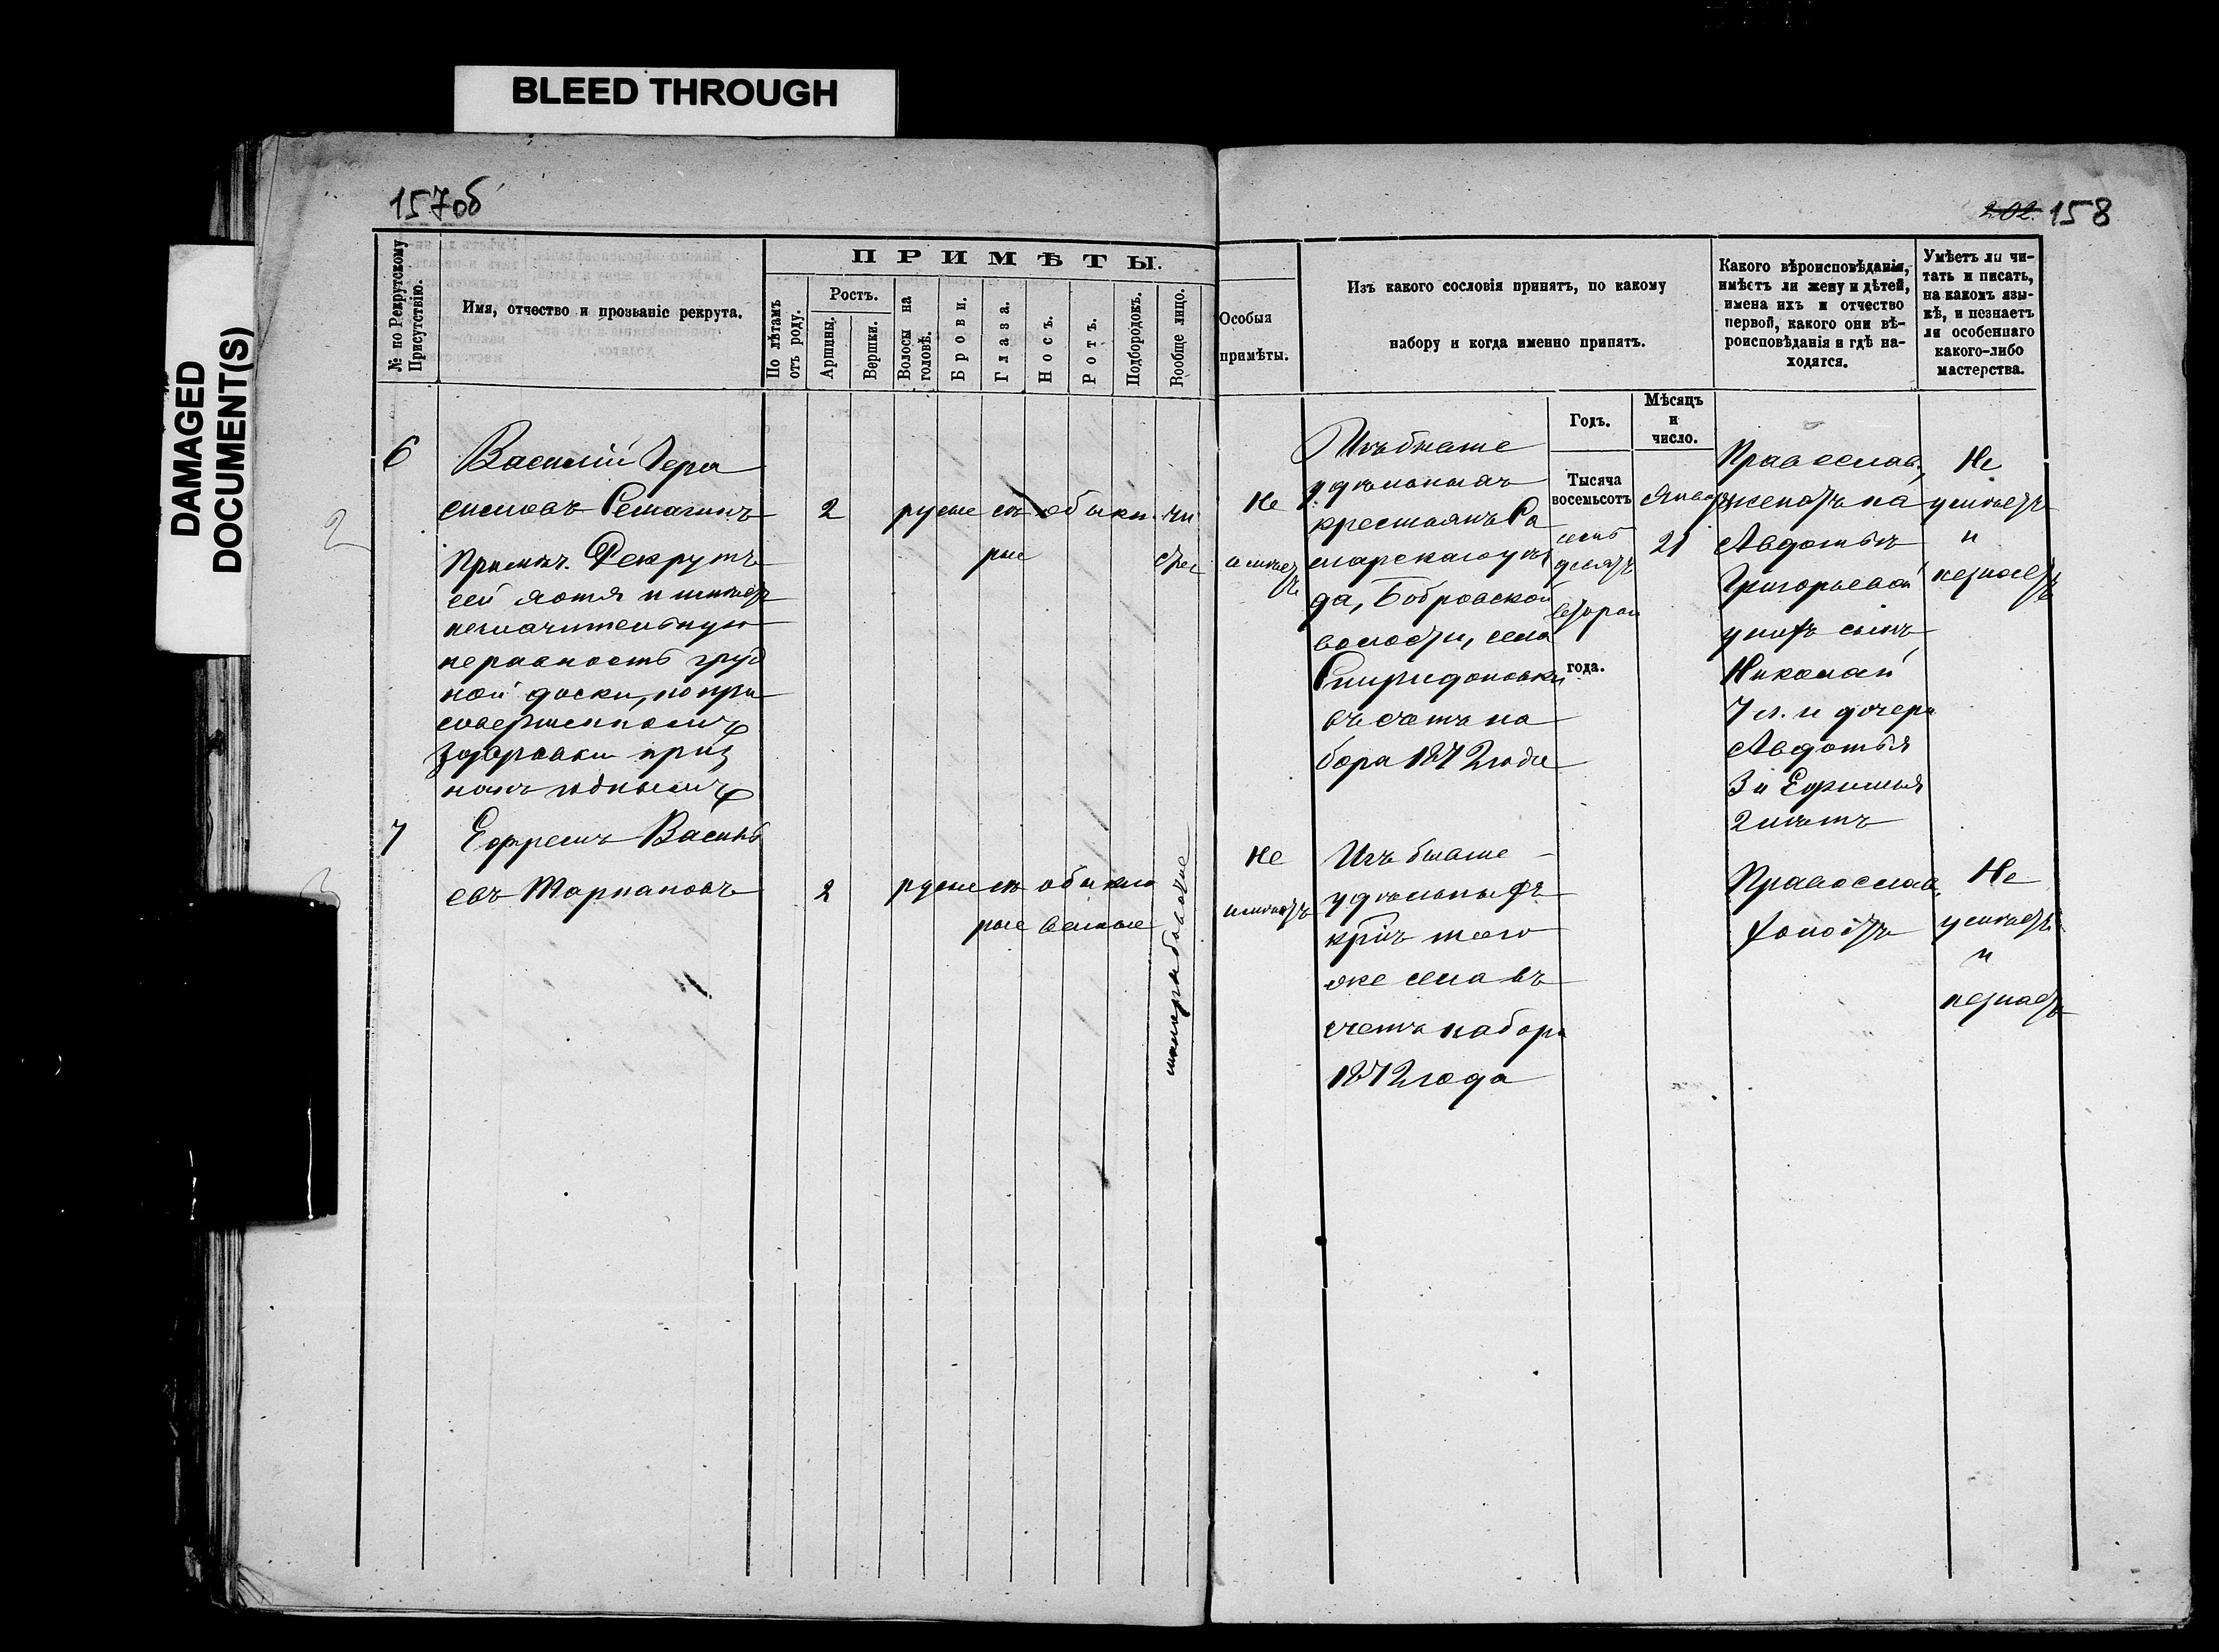 BLEED THROUGH
DAMAGED
DOCUMENT(S)
157об
202 158
№ по Рекрутскому
Присутствію.
Имя, отчество и прозваніе рекрута.
ПРИМѢТЫ.
По лѣтамъ
отъ роду.
Ростъ.
Аршины.
Вершки.
Волосы на
головѣ.
Брови.
Глаза.
Носъ.
Ротъ.
Подбородокъ.
Вообще лицо.
Особыя
примѣты.
Изъ какого сословія принятъ, по какому
набору и когда именно принятъ.
Какого вѣроисповѣданія,
имѣетъ ли жену и дѣтей,
имена ихъ и отчество
первой, какого они вѣ-
роисповѣданія и гдѣ на-
ходятся.
Умѣетъ ли чи-
тать и писать,
на какомъ язы-
кѣ, и незнаетъ
ли особеннаго
какого-либо
мастерства.
Годъ.
Мѣсяцъ
и
число.
6
2
Василій Гера
симовъ
Примѣч. Рекрутъ
сей хотя и имѣетъ
незначительную
неравность груд
ной доски, но при
совершенномъ
здоровьи приз
нанъ годнымъ
2
русые сѣ обыкн. чи
рые стое
Не
имѣетъ
Изъ бывше
удѣльныхъ
крестьянъ Са
марскаго уѣз
да, Бобровской
волости, села
Спиридоновки
въ счетъ на
бора 1872 года
Тысяча
восемьсотъ
семь
десятъ
второй
года.
Январ
21
Православ.,
женатъ на
Авдотьѣ
Григорьевой
у нихъ сынъ
Николай
7 л. и дочери
Авдотья
3 и Ефимья
2 лѣтъ
Не
умѣетъ
и
незнаетъ
7
3
Ефремъ Василь
евъ
2
русые сѣ обыкно
рые венные
Не
имѣетъ
Изъ бывше
удѣльныхъ
кр͠нъ того
же села въ
счетъ набора
1872 года
Православ.
холостъ
Не
умѣетъ
и
незнаетъ